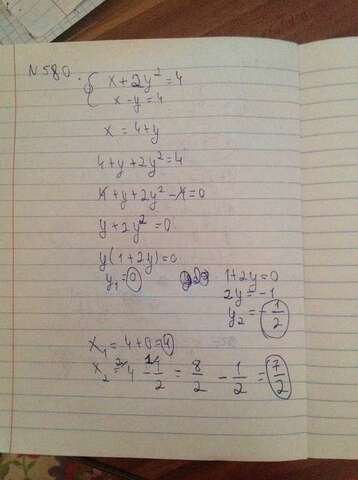 N580. { x + 2y² = 4
x - y = 4
x = 4+y
4+y+2y² = 4
4+y+2y² - 4 = 0
y+2y² = 0
y(1+2y) = 0
y₁ = 0
1+2y = 0
2y = -1
y₂ = -1/2
x₁ = 4+0 = 4
x₂ = 4 - 1/2 = 8/2 - 1/2 = 7/2